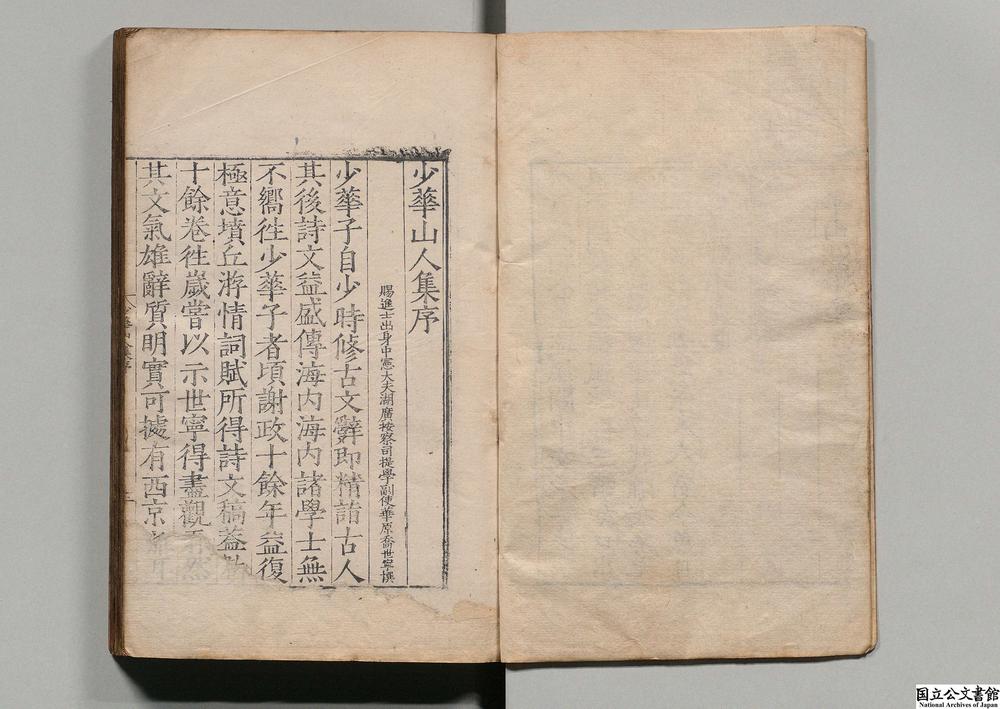 少華山人集序
賜進士出身中憲大夫湖廣按察司提學副使華原喬世寧撰
少華子自少時修古文辭即精詣古人
其後詩文益盛傳海内海内諸學士無
不嚮徃少華子者頃謝政十餘年益復
極意墳丘游情詞賦所得詩文稿蓋數
十餘卷徃嵗嘗以示世寧得盡觀焉然
其文氣雄辭質明實可據有西京
少華山人集序
国立公文書館
National Archives of Japan